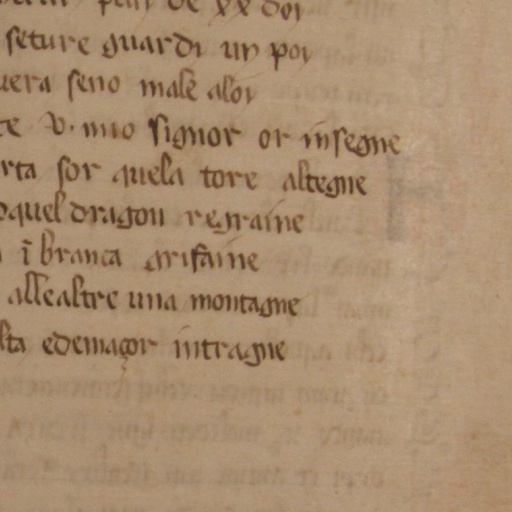 plu de xx doi
seture guardi un poi
vera seno male aloi
te v. mio signor or insegne
rta sor quela tore altegne
quel dragon regraine
i branca grifaine
alle altre una montagne
lta edemaçor intragne